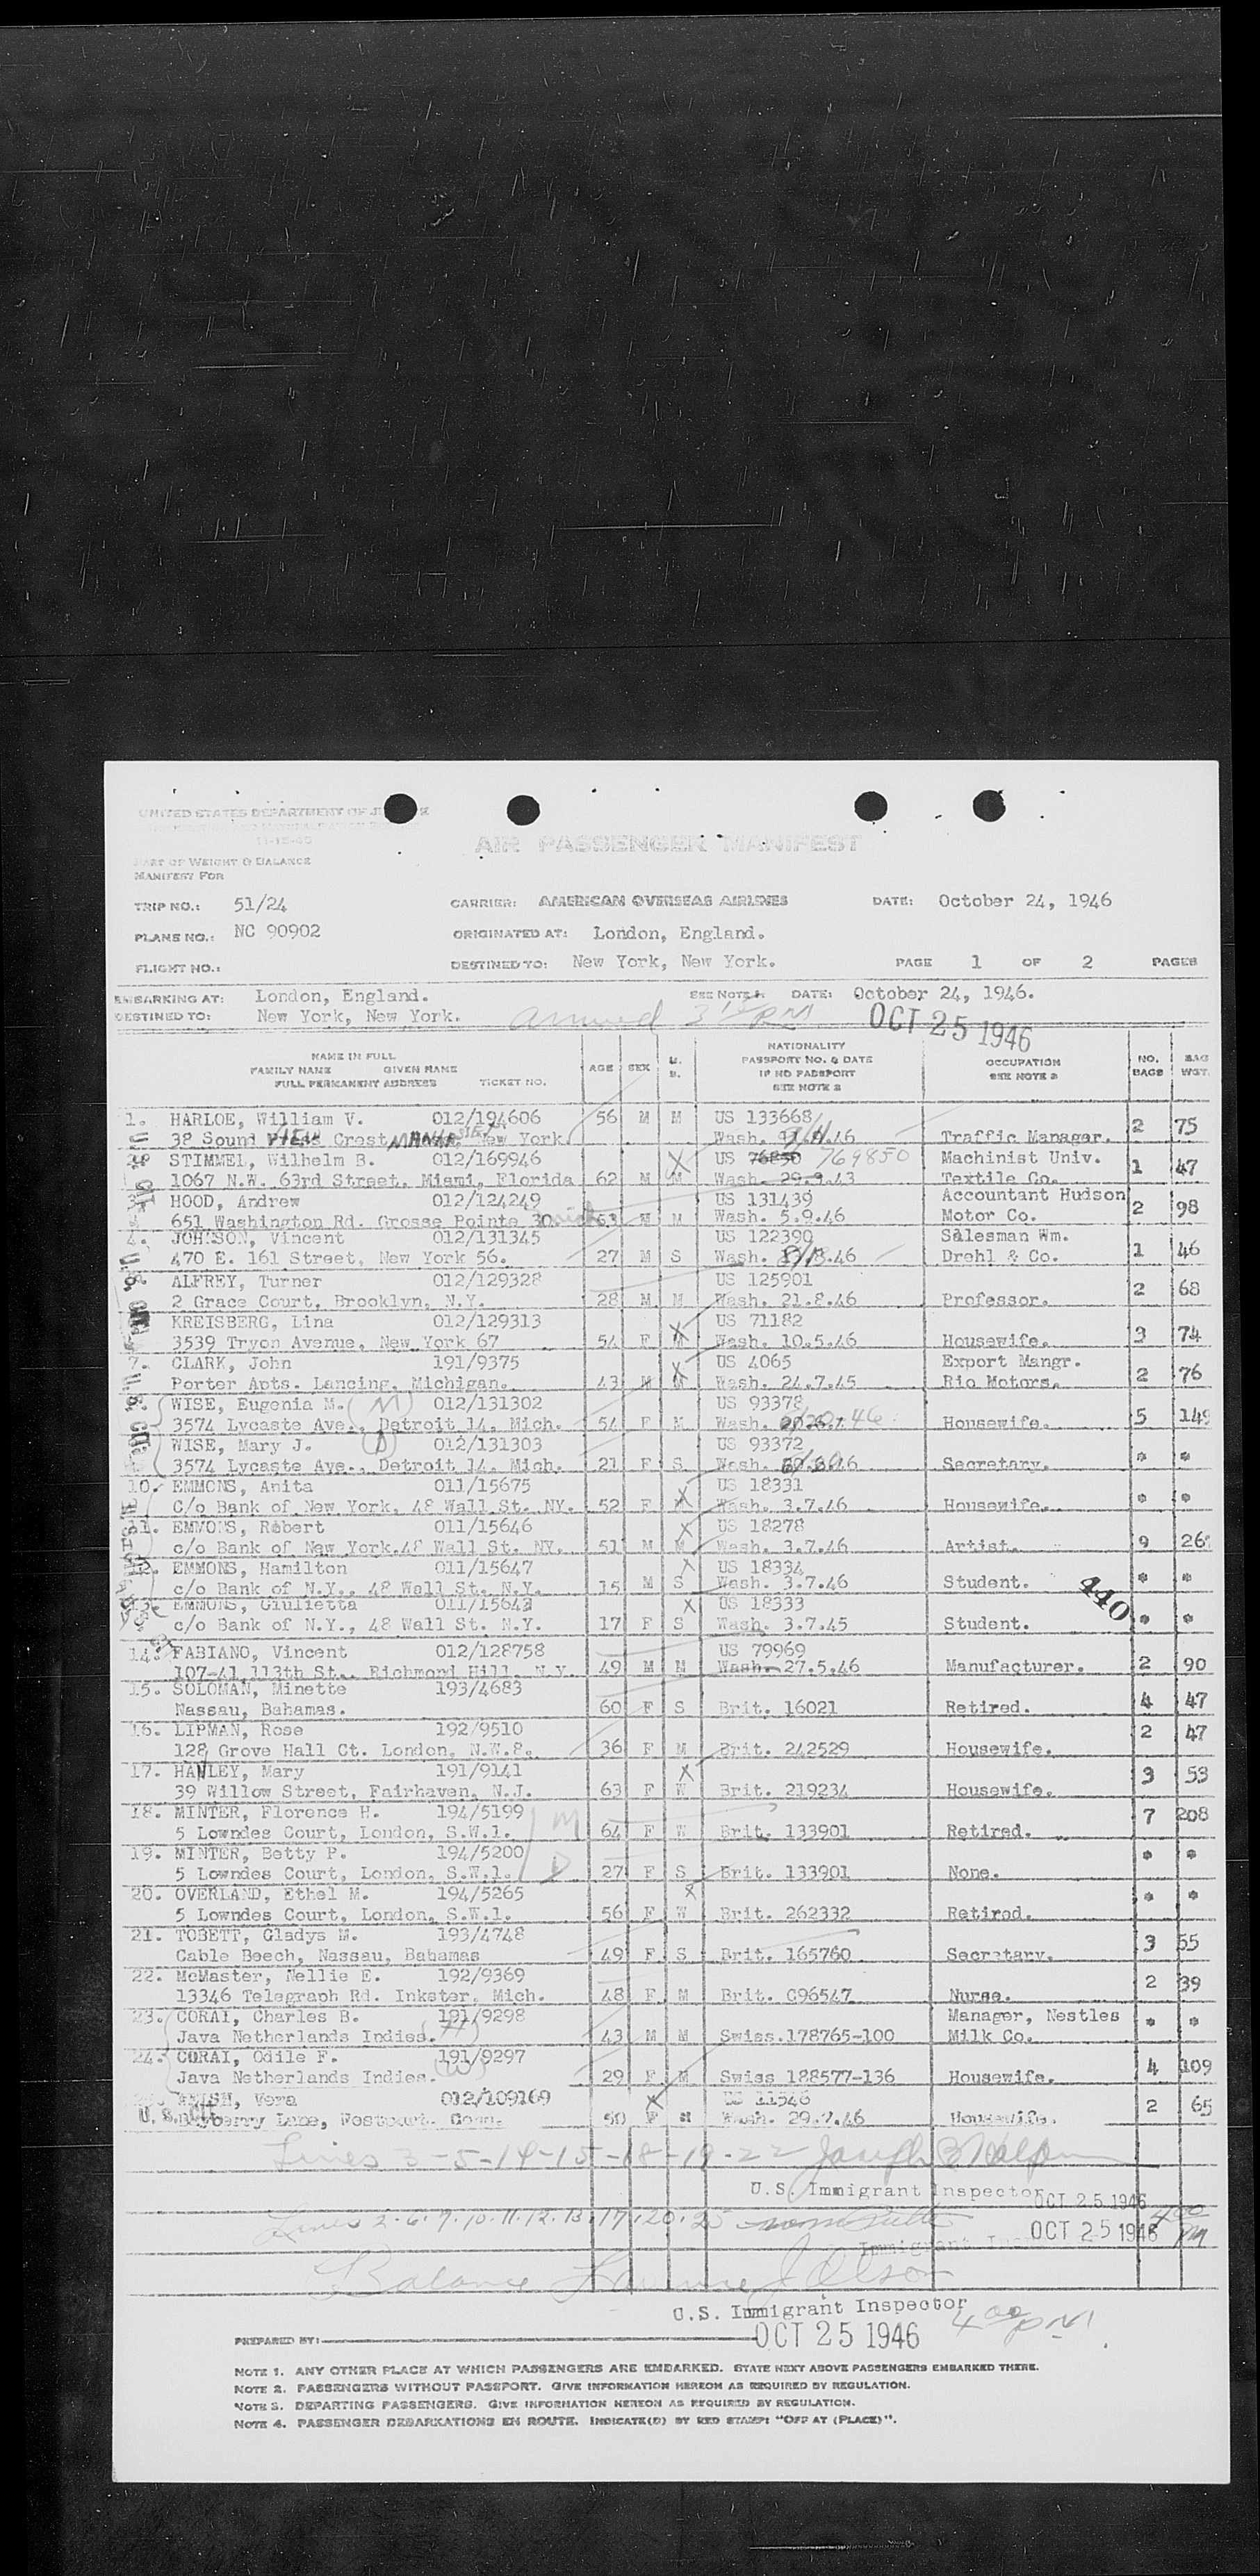 UNITED STATES DEPARTMENT OF
AIR PASSENGER MANIFEST
PART OF WEIGHT & BALANCE
MANIFEST FOR
TRIP NO.: 51/24 CARRIER: AMERICAN OVERSEAS AIRLINES DATE: October 24, 1946
PLANE NO.: NC 90902 ORIGINATED AT: London, England.
FLIGHT NO.: DESTINED TO: New York, New York. PAGE 1 OF 2 PAGES
EMBARKING AT: London, England. SEE NOTE 1. DATE: October 24, 1946.
DESTINED TO: New York, New York. arrived 3 15 PM OCT 25 1946
NAME IN FULL
FAMILY NAME GIVEN NAME
FULL PERMANENT ADDRESS TICKET NO. AGE SEX M. S. NATIONALITY
PASSPORT NO. & DATE
IF NO PASSPORT
SEE NOTE 2 OCCUPATION
SEE NOTE 3 NO. BAGS BAG WGT.
1. HARLOE, William V. 012/194606 56 M M US 133668 2 75
38 Sound View Crest New York. Wash. .46 Traffic Manager.
STIMMEL, Wilhelm B. 012/169946 US 76850 769850 Machinist Univ. 1 47
1067 N.W. 63rd Street, Miami, Florida 62 M M Wash. 29.9.43 Textile Co.
HOOD, Andrew 012/124249 US 131439 Accountant Hudson 2 98
651 Washington Rd. Grosse Pointe 30 63 M M Wash. 5.9.46 Motor Co.
4. JOHNSON, Vincent 012/131345 US 122390 Salesman Wm. 1 46
470 E. 161 Street, New York 56. 27 M S Wash. .46 Drehl & Co.
ALFREY, Turner 012/129328 US 125901 2 68
2 Grace Court, Brooklyn, N.Y. 28 M M Wash. 21.8.46 Professor.
KREISBERG, Lina 012/129313 US 71182 3 74
3539 Tryon Avenue, New York 67 54 F M Wash. 10.5.46 Housewife.
7. CLARK, John 191/9375 US 4065 Export Mangr. 2 76
Porter Apts. Lancing, Michigan. 43 M M Wash. 24.7.45 Rio Motors.
WISE, Eugenia M. (M) 012/131302 US 93378 5 149
3574 Lycaste Ave., Detroit 14, Mich. 54 F M Wash. Housewife.
WISE, Mary J. (D) 012/131303 US 93372 * *
3574 Lycaste Ave., Detroit 14, Mich. 21 F S Wash. .46 Secretary.
10. EMMONS, Anita 011/15675 US 18331 * *
C/o Bank of New York, 48 Wall St. NY. 52 F M Wash. 3.7.46 Housewife.
11. EMMONS, Robert 011/15646 US 18278 9 26
c/o Bank of New York.48 Wall St. NY. 51 M M Wash. 3.7.46 Artist.
12. EMMONS, Hamilton 011/15647 US 18334 * *
c/o Bank of N.Y., 48 Wall St. N.Y. 15 M S Wash. 3.7.46 Student.
13. EMMONS, Giulietta 011/15643 US 18333 440 * *
c/o Bank of N.Y., 48 Wall St. N.Y. 17 F S Wash. 3.7.45 Student.
14. FABIANO, Vincent 012/128758 US 79969
107-41 113th St., Richmond Hill, N.Y. 49 M M Wash. 27.5.46 Manufacturer. 2 90
15. SOLOMAN, Minette 193/4683
Nassau, Bahamas. 60 F S Brit. 16021 Retired. 4 47
16. LIPMAN, Rose 192/9510 2 47
128 Grove Hall Ct. London, N.W.8. 36 F M Brit. 242529 Housewife.
17. HANLEY, Mary 191/9141 3 53
39 Willow Street, Fairhaven, N.J. 63 F W Brit. 219234 Housewife.
18. MINTER, Florence H. 194/5199 M 7 208
5 Lowndes Court, London, S.W.1. 64 F W Brit. 133901 Retired.
19. MINTER, Betty P. 194/5200 D * *
5 Lowndes Court, London, S.W.1. 27 F S Brit. 133901 None.
20. OVERLAND, Ethel M. 194/5265 * *
5 Lowndes Court, London, S.W.1. 56 F W Brit. 262332 Retired.
21. TOBETT, Gladys M. 193/4748 3 55
Cable Beech, Nassau, Bahamas 49 F S Brit. 165760 Secretary.
22. McMaster, Nellie E. 192/9369 2 39
13346 Telegraph Rd. Inkster, Mich. 48 F M Brit. C96547 Nurse.
23. CORAI, Charles B. 191/9298 Manager, Nestles * *
Java Netherlands Indies. (H) 43 M M Swiss.178765-100 Milk Co.
24. CORAI, Odile F. 191/9297 4 109
Java Netherlands Indies. (W) 29 F M Swiss 188577-136 Housewife.
Vera 012/109169 US 11546 2 65
Lane, Westport. Conn. 50 F M Wash. 29.7.46 Housewife.
Lines 3-5-14-15-18-19-22 Joseph
U.S. Immigrant Inspector OCT 25 1946
Lines 2.6.7.10.11.12.13.17.20.25 OCT 25 1946 4 00 PM
Balance Olson
U.S. Immigrant Inspector
PREPARED BY: OCT 25 1946 4 00 PM
NOTE 1. ANY OTHER PLACE AT WHICH PASSENGERS ARE EMBARKED. STATE NEXT ABOVE PASSENGERS EMBARKED THERE.
NOTE 2. PASSENGERS WITHOUT PASSPORT. GIVE INFORMATION HEREON AS REQUIRED BY REGULATION.
NOTE 3. DEPARTING PASSENGERS. GIVE INFORMATION HEREON AS REQUIRED BY REGULATION.
NOTE 4. PASSENGER DEBARKATIONS EN ROUTE. INDICATE(D) BY RED STAMP: "OFF AT (PLACE)".